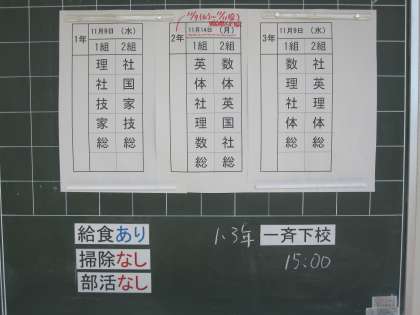 1年
11月9日 （水）
1組 2組
理 社
社 国
技 家
家 技
総 総
2年
11月14日 （月）
1組 2組
英 数
体 体
社 英
理 国
数 社
総 総
3年
11月9日 （水）
1組 2組
数 社
理 英
社 理
体 体
総 総
給食あり
掃除なし
部活なし
1.3年 一斉下校
15:00